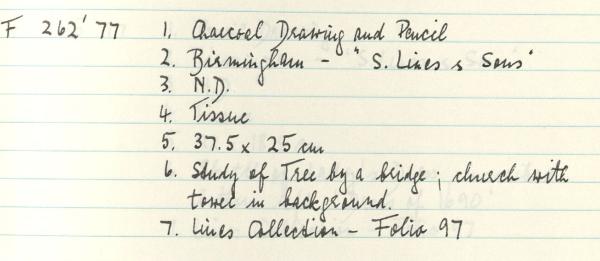 F 262'77 1. Charcoal Drawing and Pencil
2. Birmingham - "S. Lines & Sons"
3. N.D.
4. Tissue
5. 37.5 x 25 cm
6. Study of Tree by a bridge; church with
tower in background.
7. Lines Collection - Folio 97